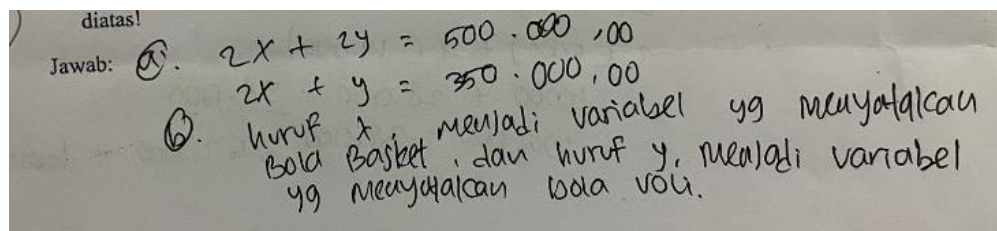 diatas!
Jawab: a. 2x + 2y = 500.000,00
2x + y = 350.000,00
b. huruf x, menjadi variabel yg menyatakan
Bola Basket, dan huruf y, menjadi variabel
yg menyatakan bola voli.